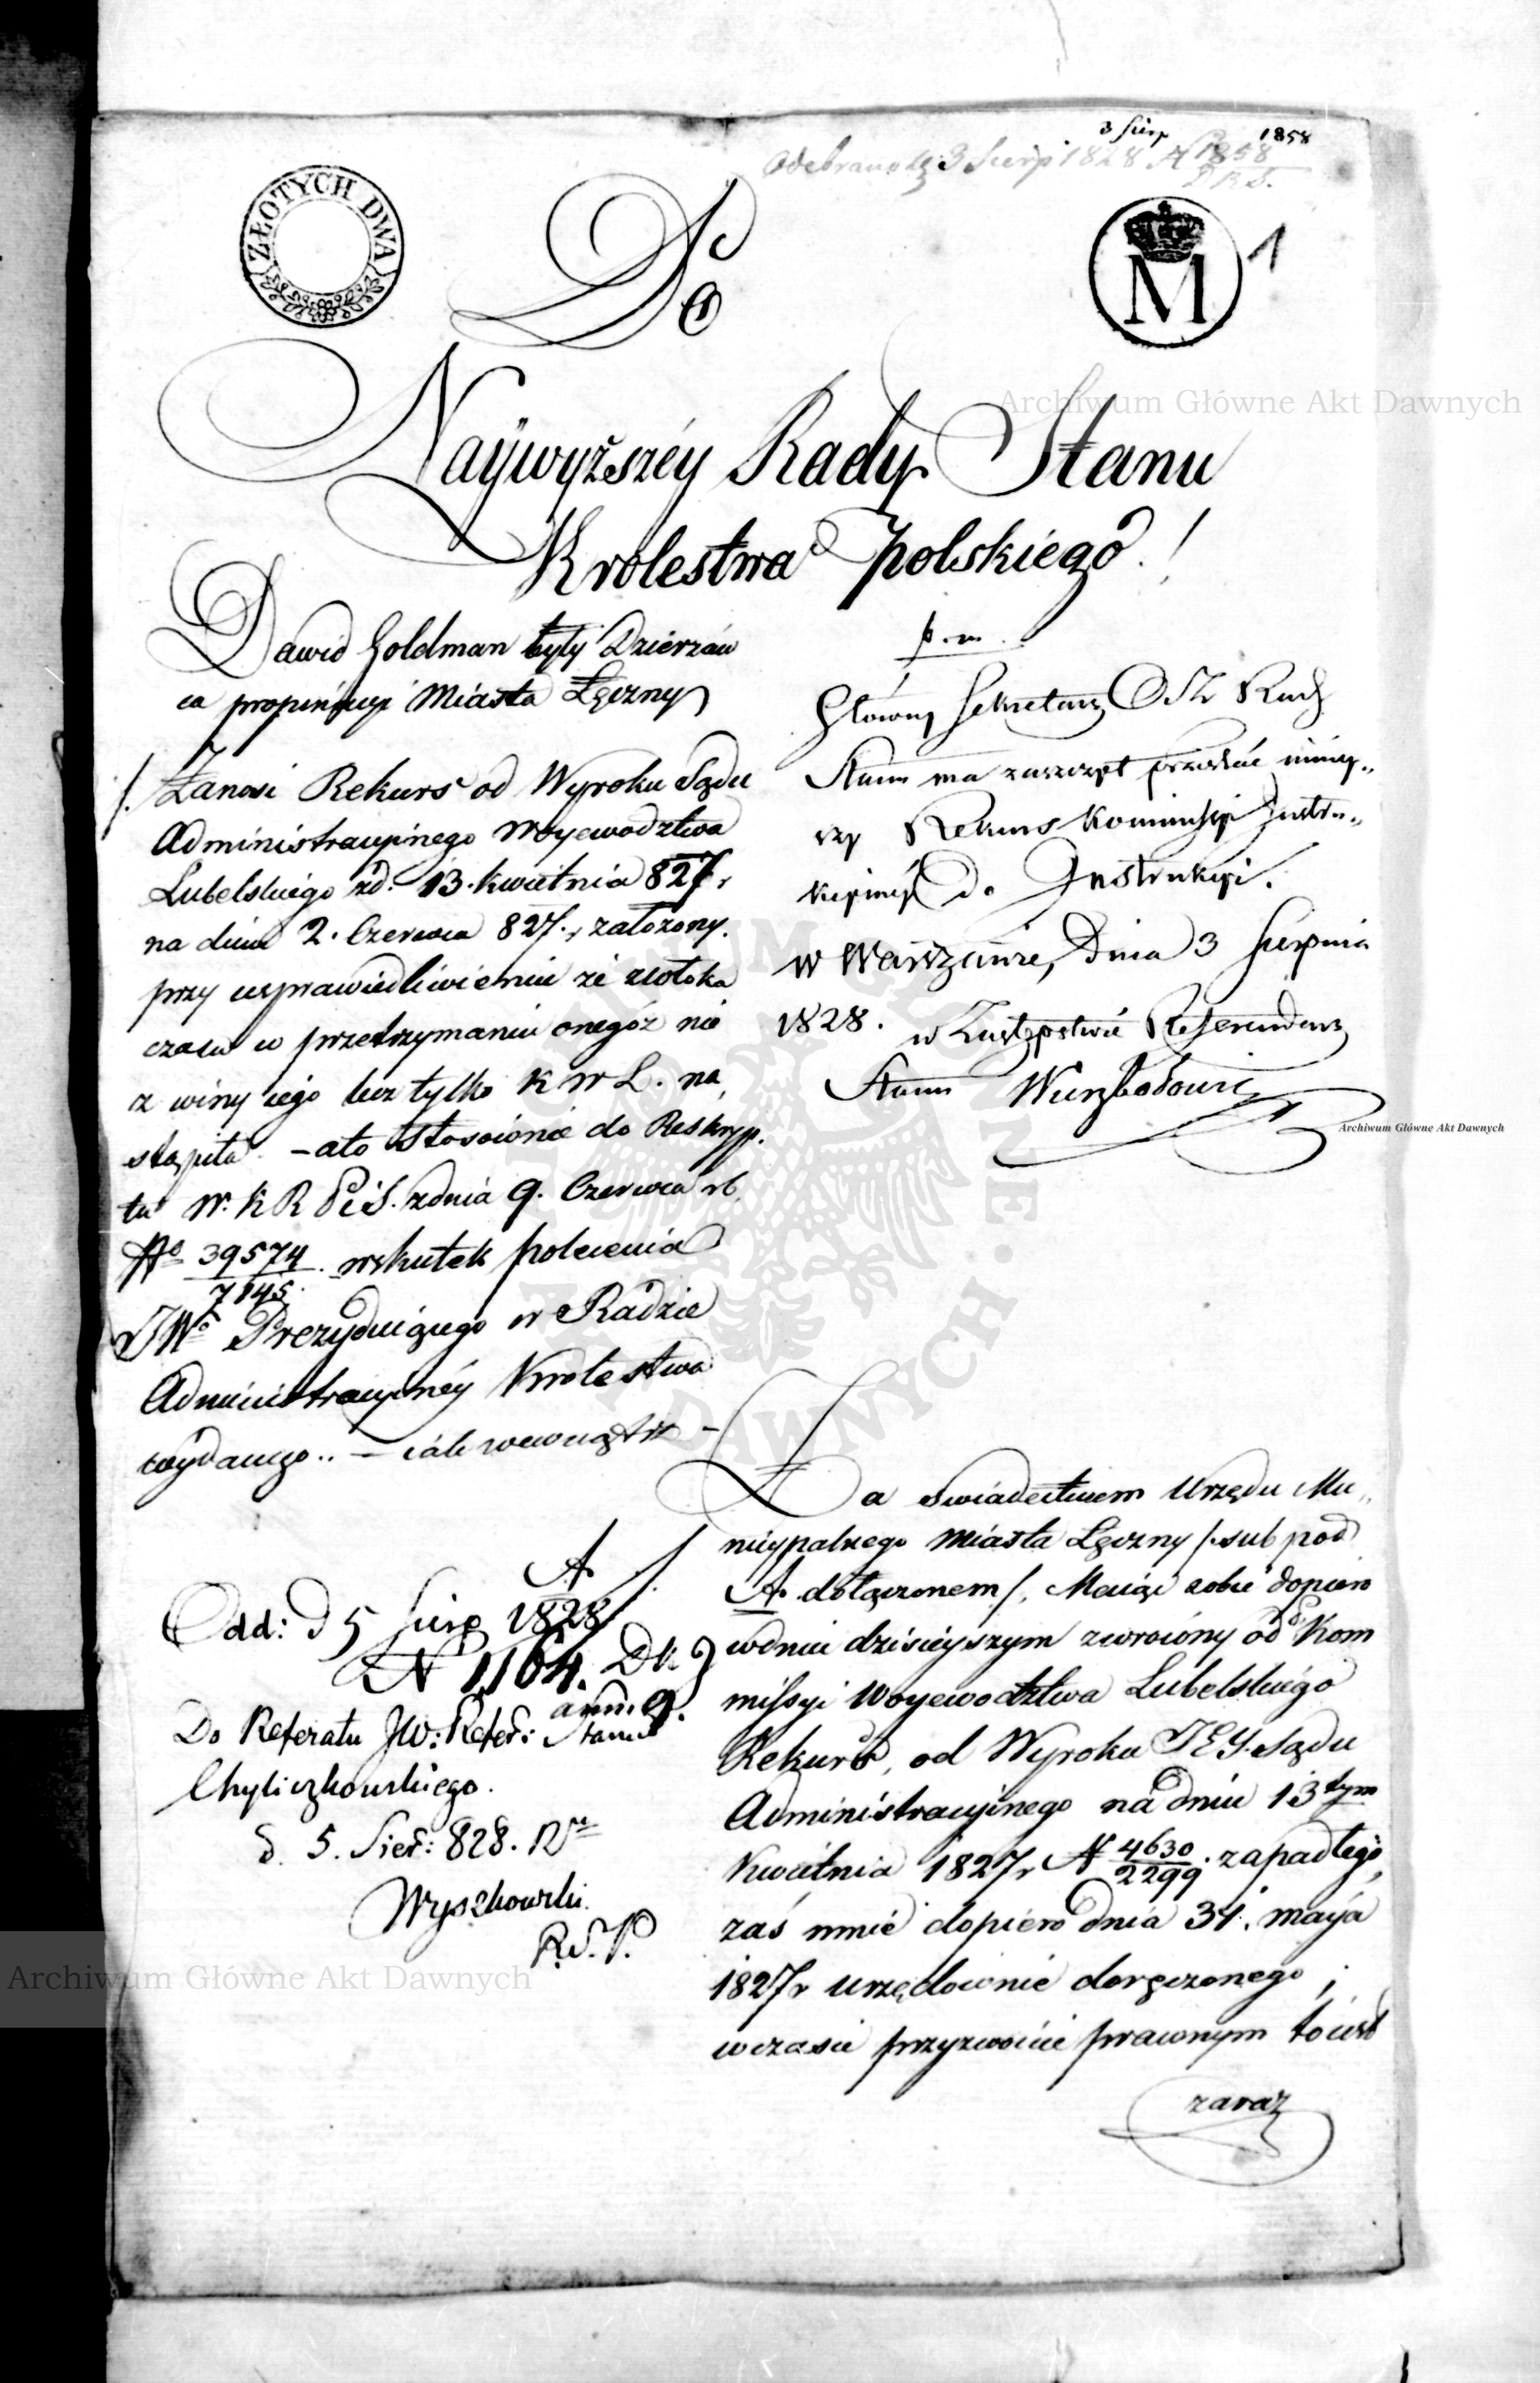 3 Sierp 1858
Odebrano d. 3 Sierp 1828 N 1858
D R S.
ZŁOTYCH DWA
M
1
Do
Naÿwyższéy Rady Stanu
Krolestwa polskiego !
Dawid Goldman były Dzierzaw
ca propinacyi Miasta Łęczny
/. Zanosi Rekurs od Wyroku Sądu
Administracyinego Woyewodztwa
Lubelskiego zd: 13. kwietnia 827 r
na dniu 2. Czerwca 827. r założony.
przy usprawiedliwieniu że zwłoka
czasu w przetrzymaniu onegóż nie
z winy iego lecz tylko K W L. na
stąpiła – ato stosownie do Reskryp.
tu W. K R P i S. zdnia 9. Czerwca rb
No 39574/7145. wskutek polecenia
JWo Prezyduiącego w Radzie
Administracyinéy Krolestwa
wydanego .. – iak wewnątrz –
p. m.
Główny Sekretarz Rady
Stanu ma zaszczyt przesłać ninieý„
szy Rekurs Kommissyi Instru„
kcyinéy do Instrukcyi.
w Warszawie, Dnia 3 Sierpnia
1828. w Zastępstwie Referendarz
Stanu
A
Odd: d 5 Sierp 1828
N 1,164. Dk
ann. 9.
Do Referatu JW: Refer: Stanu
Chyliczkowskiego.
d. 5. Sier: 828. R
Wyszkowski
R. S. P.
Za świadectwem Urzędu Mu„
nicypalnego Miasta Łęczny /. sub pod
A. dołączonem /. Maiąc sobie dopiero
wdniu dzisieyszym zwrócony od Kom
missyi Woyewodztwa Lubelskiego
Rekurs, od Wyroku JEY. Sądu
Administracyinego na dniu 13tym
Kwietnia 1827 r N 4630/2299. zapadłego,
zaś mnie dopiero dnia 31. maÿa
1827 r urzędownie doręczonego ;
wczasie przyzwoicie prawnym to iest
zaraz
Archiwum Główne Akt Dawnych
Archiwum Główne Akt Dawnych
Archiwum Główne Akt Dawnych